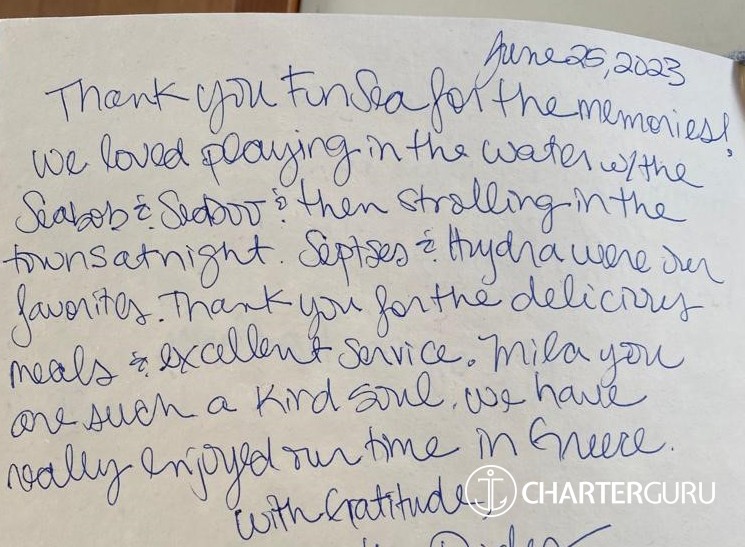 June 25, 2023
Thank you Fun Sea for the memories!
we loved playing in the water w/ the
Seabob & Seadoo & then strolling in the
towns at night. Septses & Hydra were our
favorites. Thank you for the delicious
meals & excellent service. Mila you
are such a kind soul. we have
really enjoyed our time in Greece.
with Gratitude,
CHARTERGURU